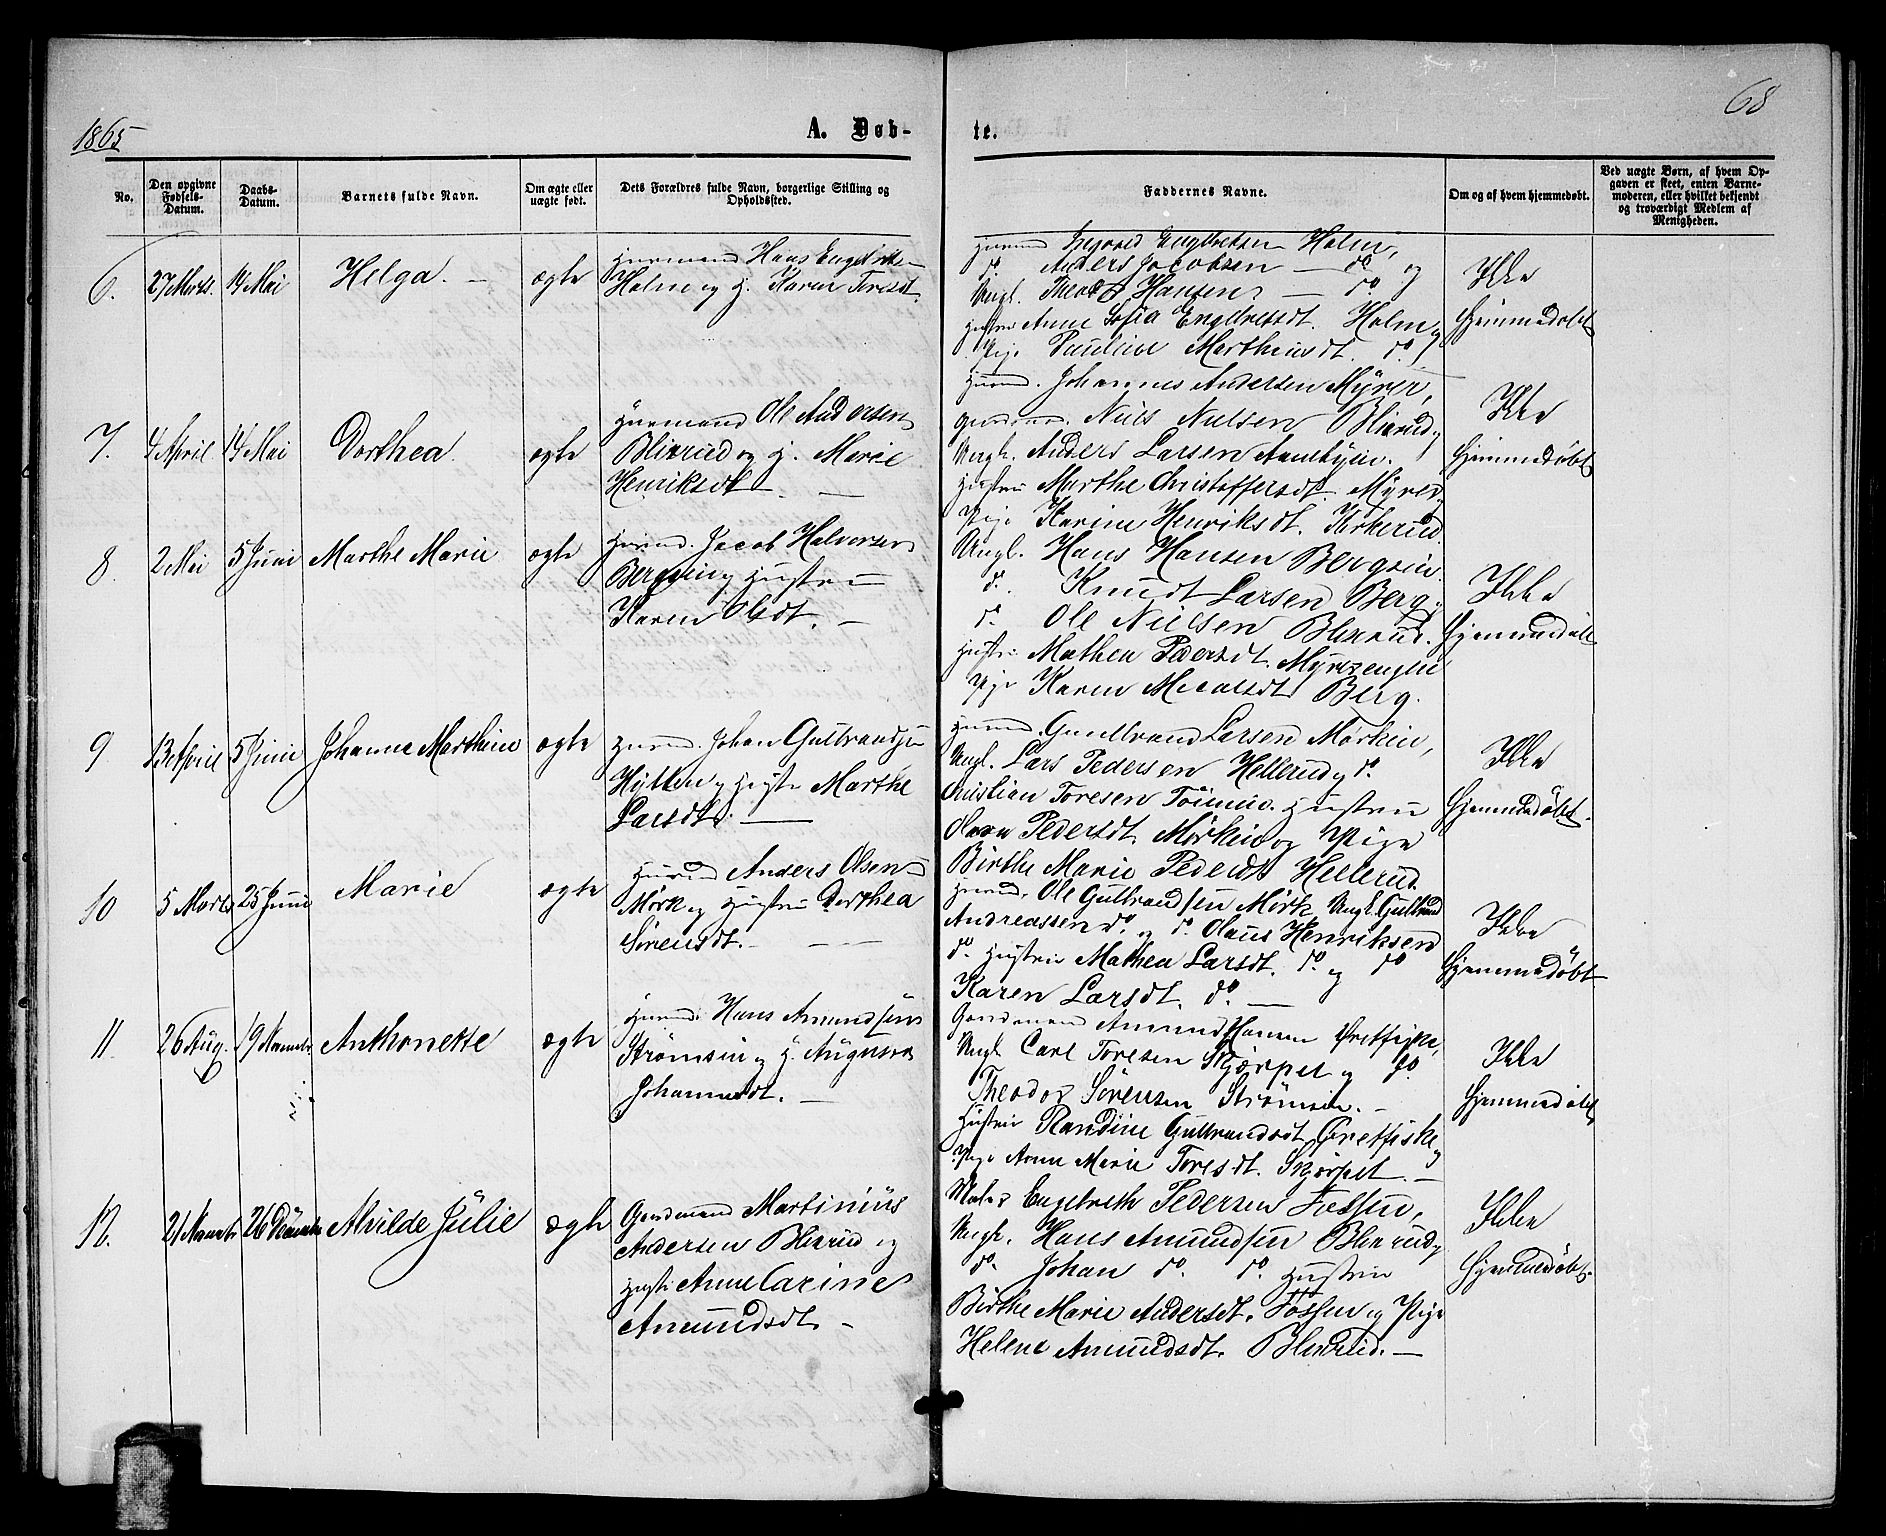 1865
A. Døb-
te.
68
No.
Den opgivne Fødsels-Datum.
Daabs-Datum.
Barnets fulde Navn.
Om ægte eller uægte født.
Dets Forældres fulde Navn, borgerlige Stilling og Opholdssted.
Faddernes Navne.
Om og af hvem hjemmedøbt.
Ved uægte Børn, af hvem Op-
gaven er skeet, enten Barne-
moderen, eller hvilket bekjendt
og troværdigt Medlem af
Menigheden.
6. 27 Marts. 14 Mai Helga. — ægte
Huusmand Hans Engebretsen
Holm og H. Karen Toresdt.
Engebretsen Holm,
do. Anders Jacobsen — do. og
Ungk. Theodor Hansen — do
Hustru Anne Sofia Engebretsdt. Holm og
Pige Pauline Marthinsdt. do.
Ikke
Hjemmedøbt
7. 4 April 14 Mai Dorthea. ægte
Huusmand Ole Andersen
Blixrud og H. Marie
Henriksdt. —
Huusmd. Johannes Andersen Myrer,
Niels Nielsen Blixrud,
Ungk. Anders Larsen
Hustru Marthe Christoffersdt. Myrer og
Pige Karine Henriksdt. Kirkerud.
Ikke
Hjemmedøbt
8. 2 Mai 5 Juni Marthe Marie ægte
Huusmd. Jacob Halvorsen
Bergsein og Hustru
Karen Olsdt. —
Ungk. Hans Hansen Bergsein.
do. Knudt Larsen Berg,
do. Ole Nielsen Blixrud.
Hustru Mathea Pedersdt. Myrezengen
Pige Karen Berg.
Ikke
Hjemmedøbt
9 13 April 5 Juni Johanne Marthine ægte
Huusmd. Johan Gulbrandsen
Hytten og Hustru Marthe
Larsdt. —
Huusmd. Gundbrand Larsen Mørkein,
Ungk. Lars Pedersen Hellerud og do.
Christian Toresen Hustru
Pedersdt. Mørkein og Pige
Birthe Marie Pedersdt Hellerud.
Ikke
Hjemmedøbt.
10 5 Marts 25 Juni Marie ægte
Huusmd Anders Olsen
Mørk og Hustru Dorthea
Sørensdt. — —
Huusmd. Ole Gulbrandsen Mørk Ungk. Gulbrand
Andreassen do. og do. Olaus Henriksen
do. Hustru Mathea Larsdt. do. og do
Karen Larsdt. do. —
Ikke
Hjemmedøbt
11. 26 Aug. 19 Novembr Anthonette ægte
Huusmd. Hans Amundsen
Strømsein og H. Augusta
Johannesdt. —
Gaardmand Amund Hansen Øretfiske,
Ungk Carl Toresen Skjørpet og do.
Theodor Sørensen Strømsein. —
Hustru Randine Gulbrandsdt Øretfiske og
Pige Anne Marie Toresdt. Skjørpet. —
Ikke
Hjemmedøbt
12. 21 Novembr 26 Decembr Alvilde Julie ægte
Gaardmand Martinius
Andersen Blixrud og
Hustru Anne Carine
Amundsdt —
Maler Engebreth Pedersen Fossen,
Ungk. Hans Amundsen Blixrud og
do. Johan do. do. Hustru
Birthe Marie Andersdt. Fossen og Pige
Helene Amundsdt. Blixrud. —
Ikke
Hjemmedøbt.